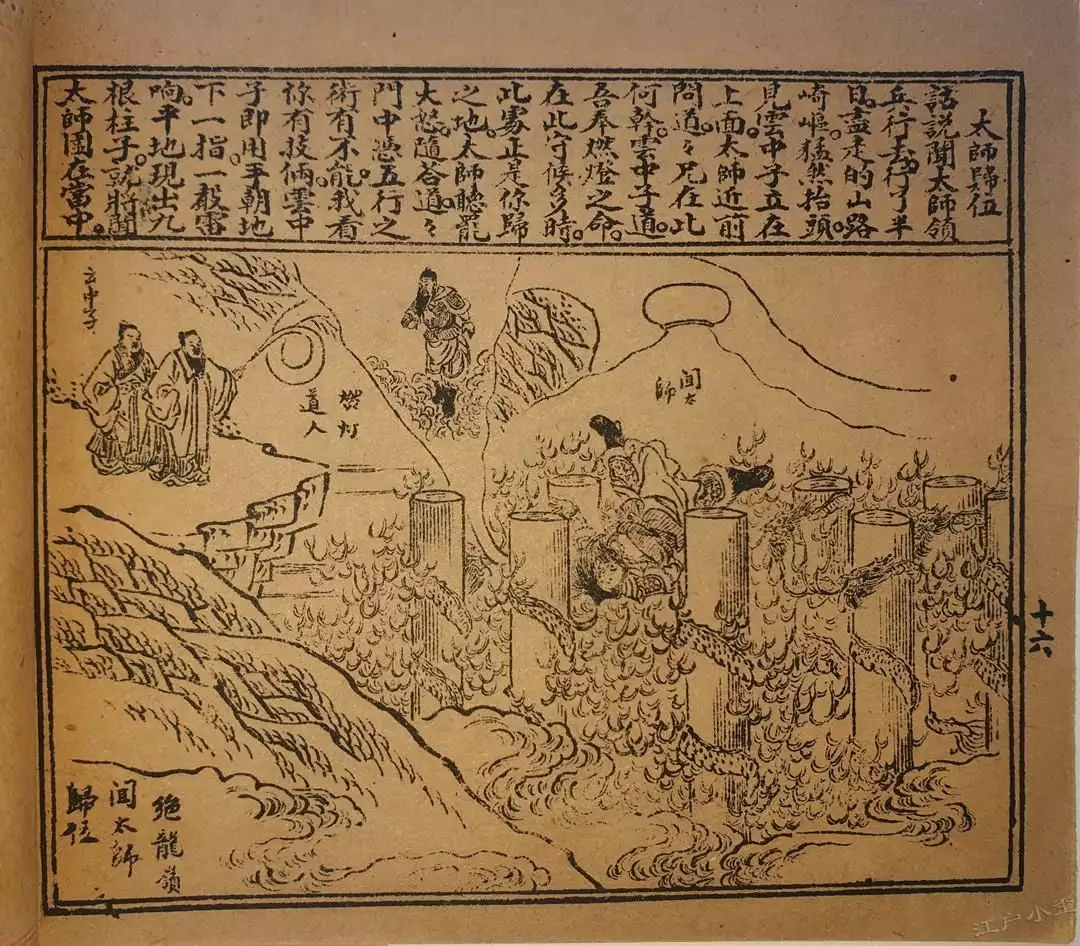 太師歸位
話說聞太師領
兵行去。行了半
日。盡走的山路
崎嶇。猛然抬頭。
見雲中子立在
上面太師近前
問道。々兄在此
何幹。雲中子道。
吾奉燃燈之命。
在此守候多時。
此處正是你歸
之地。太師聽罷
大怒。隨答道。々
門中憑五行之
術有不能我看
你有技倆雲中
子即用手朝地
下一指一般雷
响平地現出九
根柱子。就將聞
太師圍在當中。
聞太
師
燃灯
道人
云中子
十六
絕龍嶺
聞太師
歸位
江户小歪